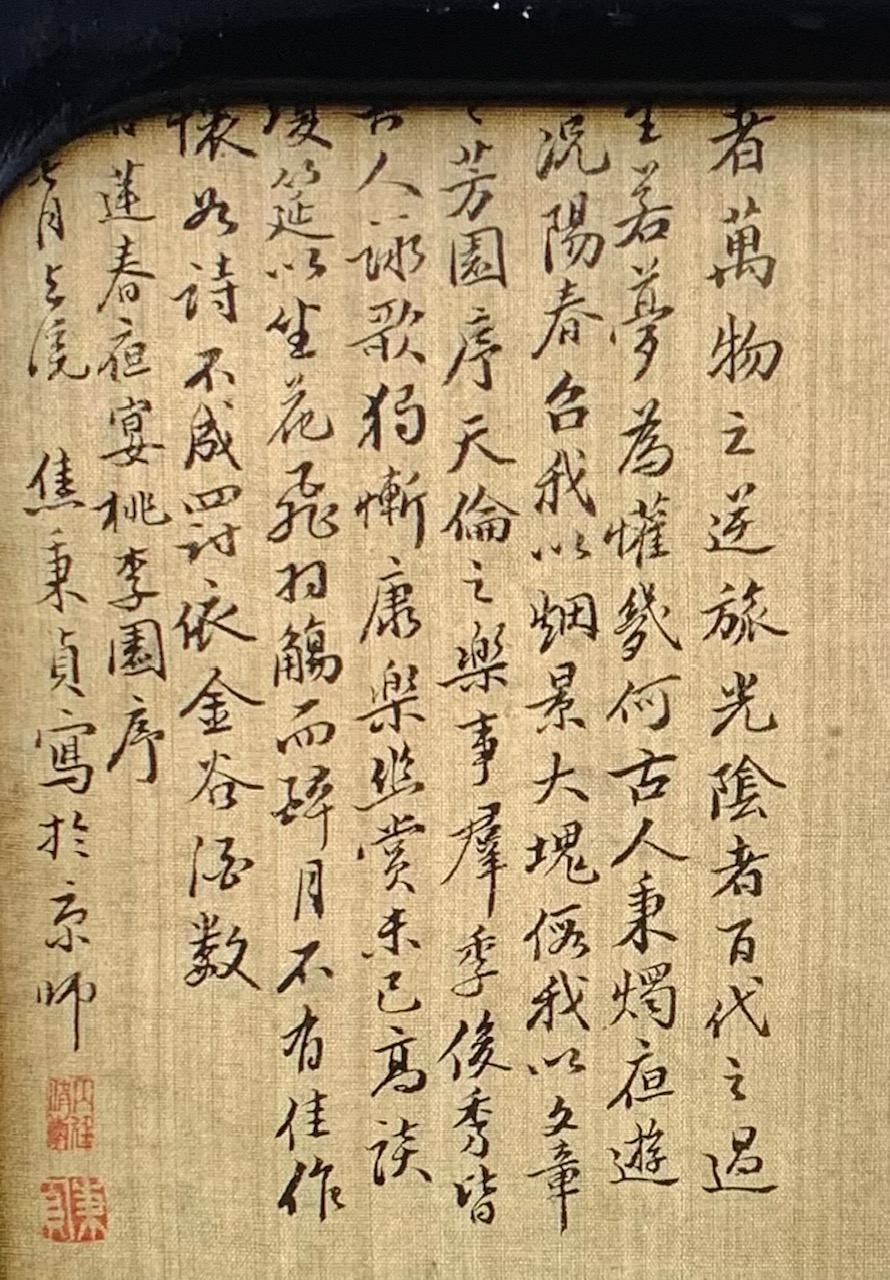 者萬物之逆旅光陰者百代之過
生若夢為懽幾何古人秉燭夜遊
況陽春召我以烟景大塊假我以文章
芳園序天倫之樂事羣季俊秀皆
古人詠歌獨慚康樂幽賞未已高談
瓊筵以坐花飛羽觴而醉月不有佳作
懷如詩不成罰依金谷酒數
蓮春夜宴桃李園序
七月上浣 焦秉貞寫於京師